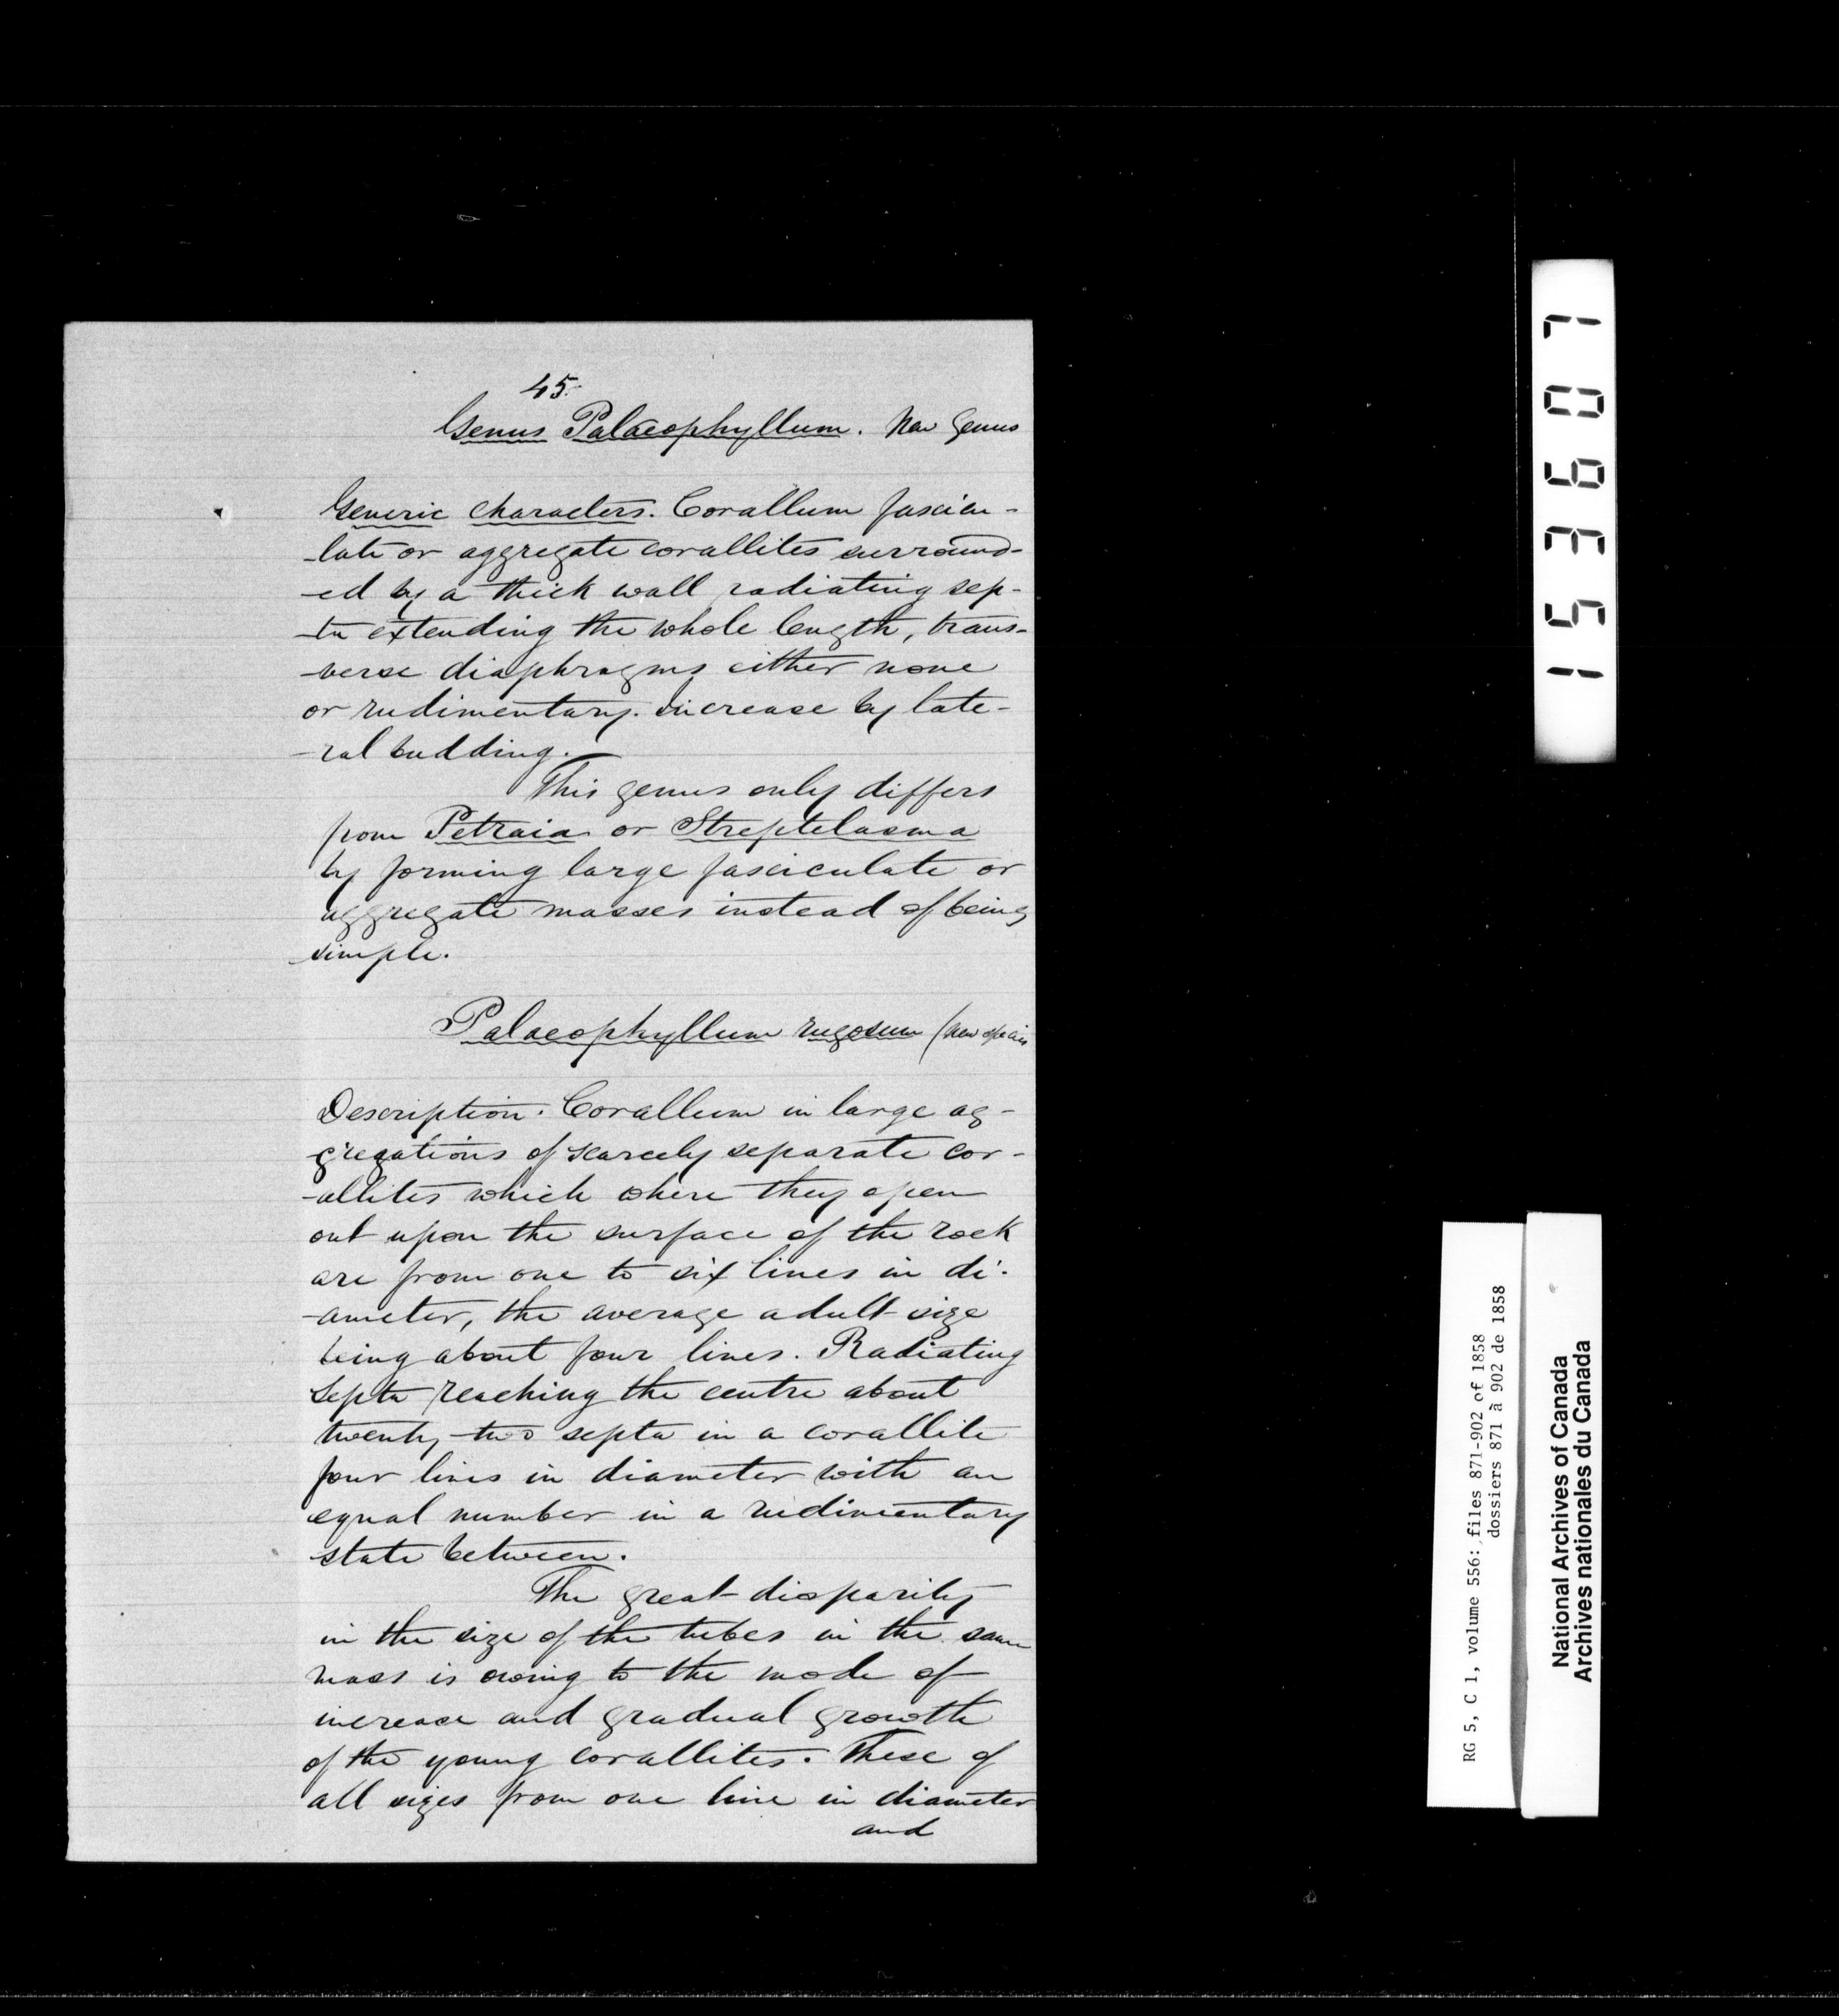 45.
Genus Palaeophyllum. New Genus
Generic characters. Corallum fascicu-
-late or aggregate corallites surround-
-ed by a thick wall radiating sep-
-ta extending the whole length, trans-
-verse diaphragms either none
or rudimentary. Increase by late-
-ral budding.
This genus only differs
from Petraia or Streptelasma
by forming large fasciculate or
aggregate masses instead of being
simple.
Palaeophyllum rugosum (new species
Description. Corallum in large ag-
gregations of scarcely separate cor-
-allites which where they open
out upon the surface of the rock
are from one to six lines in di-
-ameter, the average adult size
being about four lines. Radiating
septa reaching the centre about
twenty-two septa in a corallite
four lines in diameter with an
equal number in a rudimentary
state between.
The great disparity
in the size of the tubes in the same
mass is owing to the mode of
increase and gradual growth
of the young corallites. These of
all sizes from one line in diameter
and
153607
RG 5, C 1, volume 556: files 871-902 of 1858
dossiers 871 à 902 de 1858
National Archives of Canada
Archives nationales du Canada